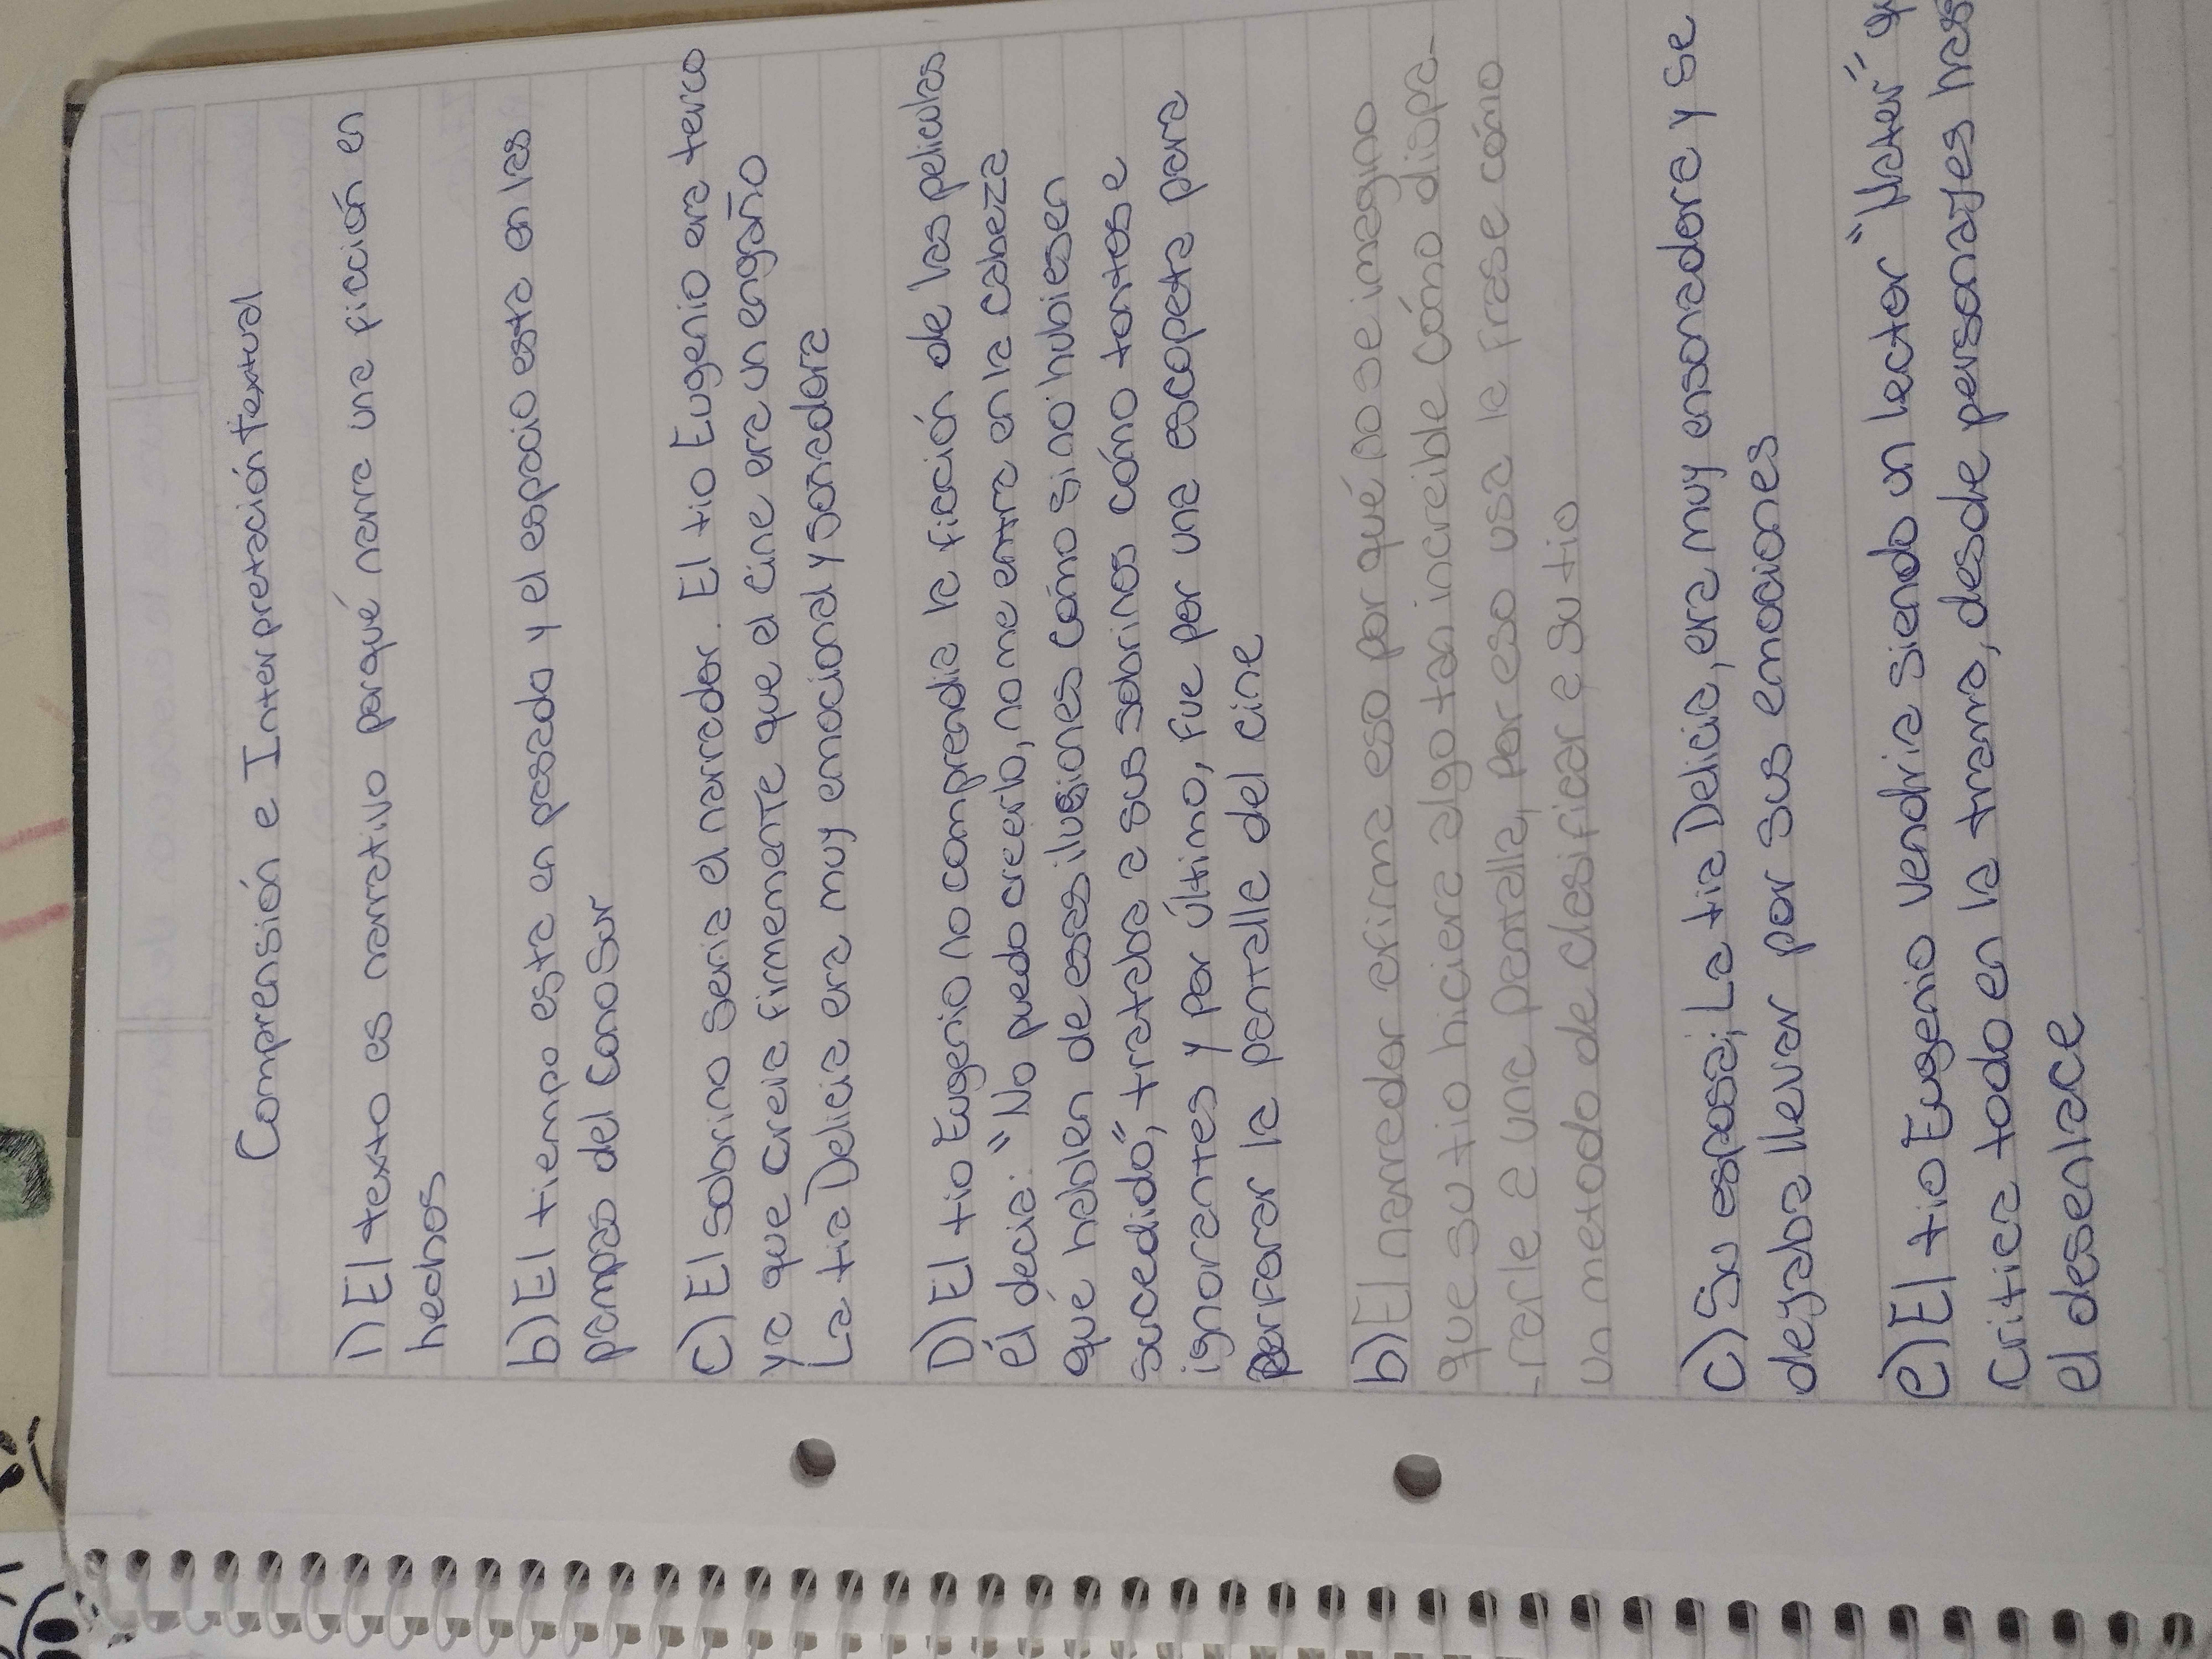 Comprensión e Interpretación Textual
1) El texto es narrativo porqué narra una ficción en
hechos
b) El tiempo esta en pasado y el espacio esta en las
pampas del Cono Sur
c) El sobrino seria el narrador. El tio Eugenio era terco
ya que creia firmemente que el cine era un engaño
La tia Delicia era muy emocional y soñadora
D) El tio Eugenio no comprendia la ficción de las peliculas
él decia: "No puedo creerlo, no me entra en la cabeza
qué hablen de esas ilusiones cómo si no hubiesen
sucedido", trataba a sus sobrinos cómo tontos e
ignorantes y por último, fue por una escopeta para
perforar la pantalla del cine
b) El narrador afirma eso por qué no se imagino
que su tio hiciera algo tan increible cómo dispa-
-rarle a una pantalla, por eso usa la frase cómo
un metodo de clasificar a su tio
c) Su esposa; La tia Delicia, era muy ensoñadora y se
dejaba llevar por sus emociones
e) El tio Eugenio vendria siendo un lector "Hater"
critica todo en la trama, desde personajes
el desenlace